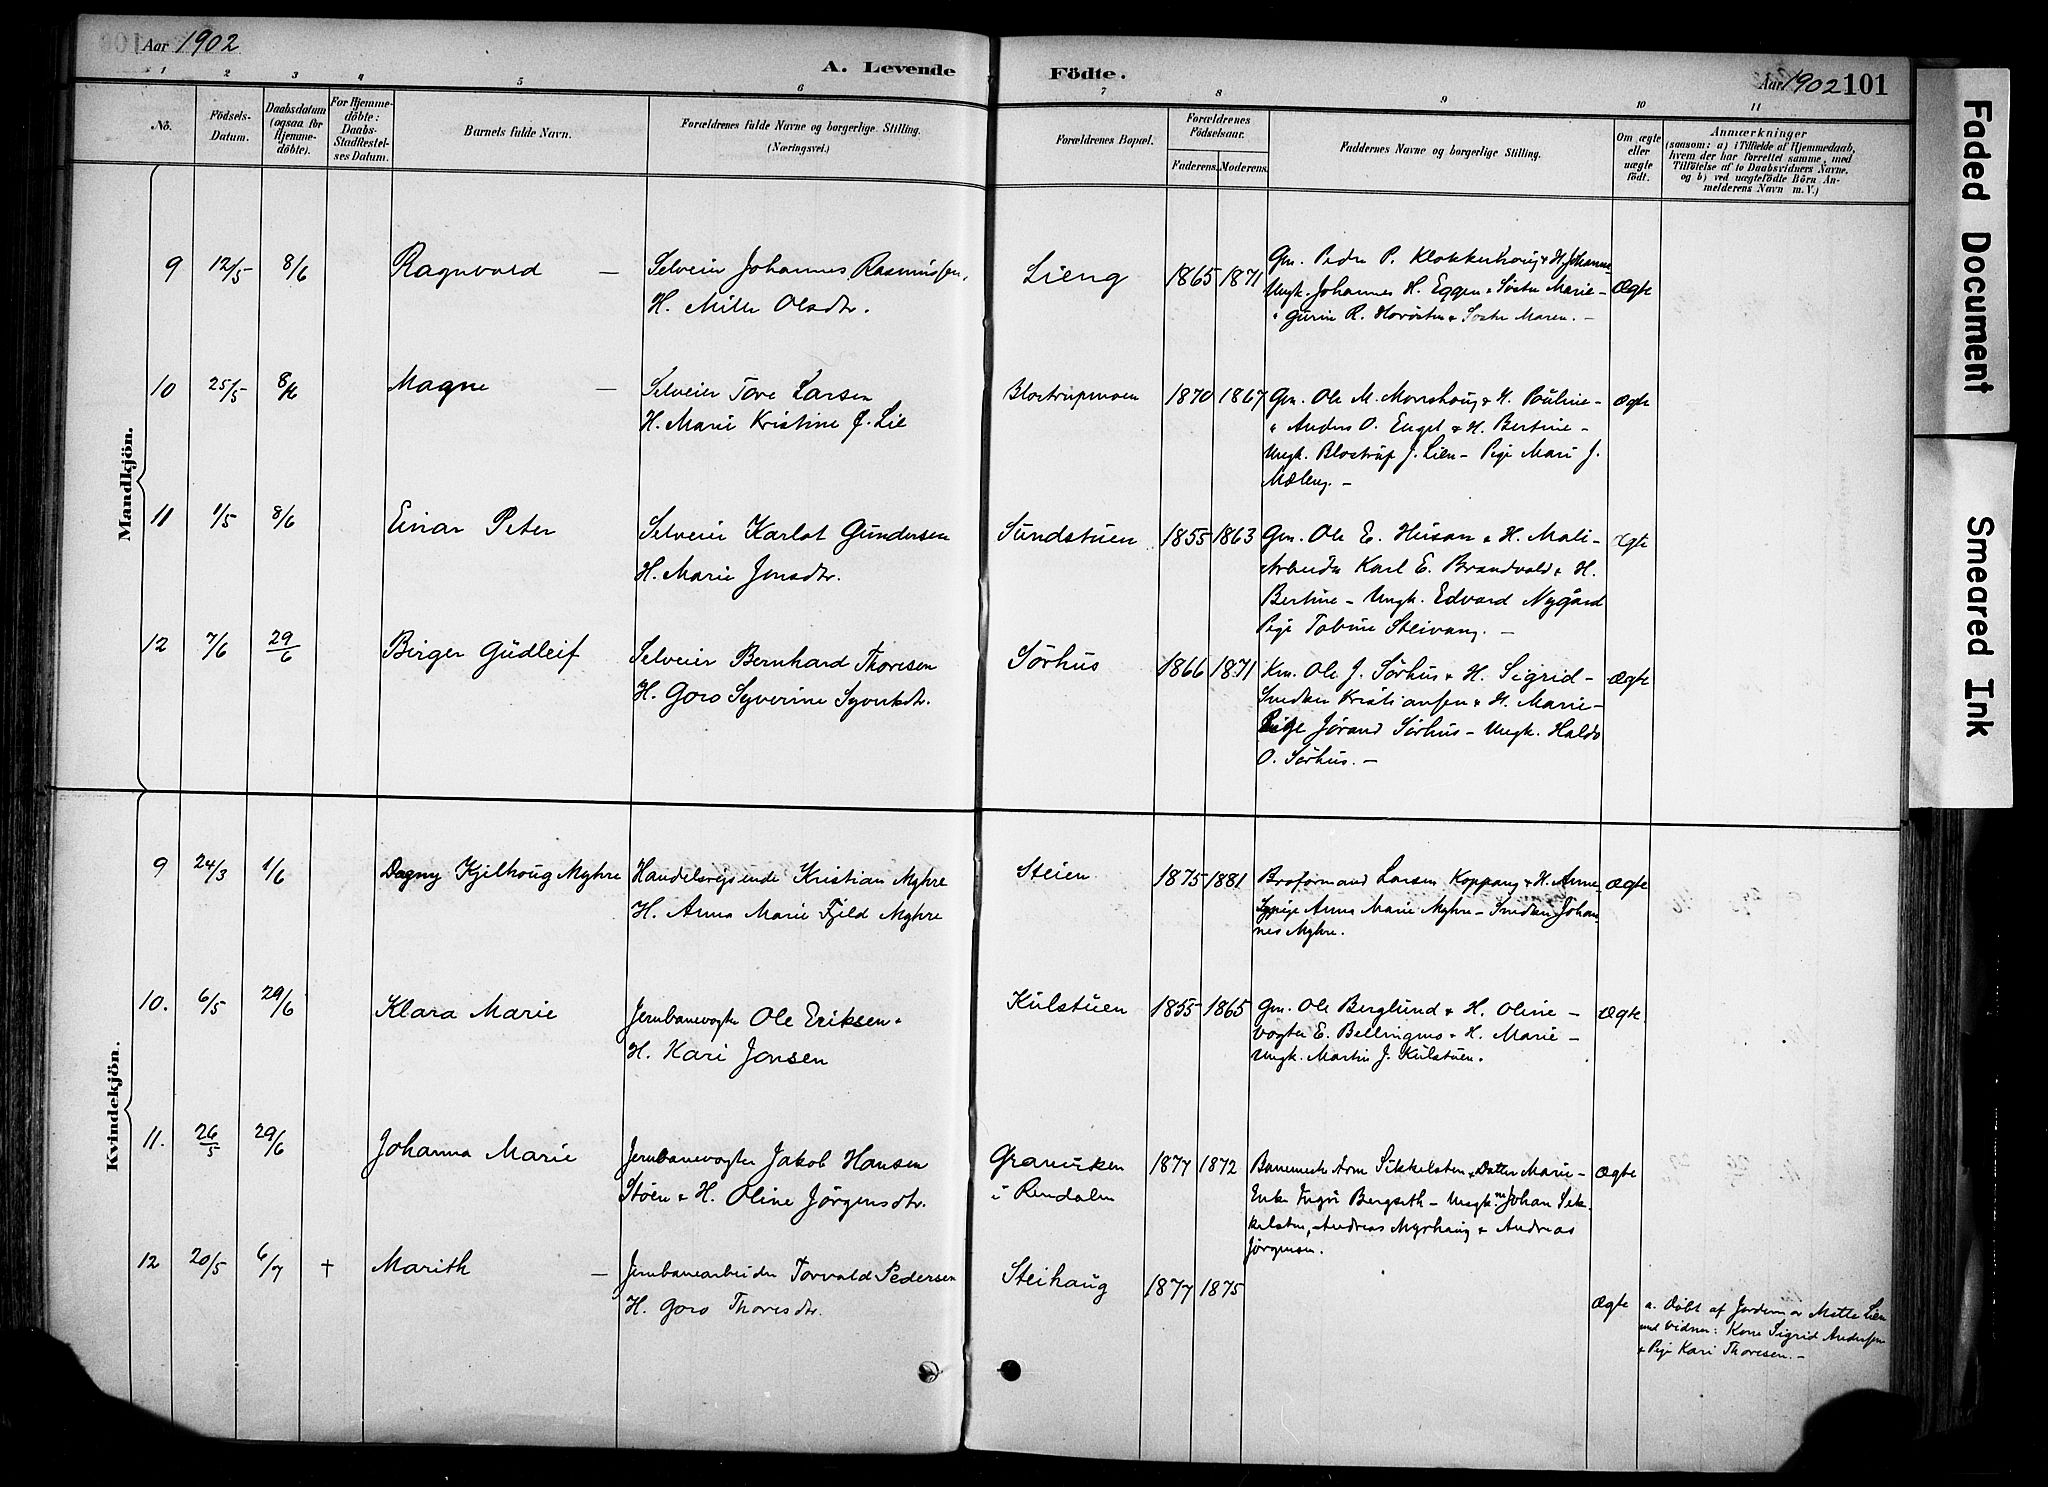 Aar 1902
A. Levende Födte.
Aar 1902 101
1 2 3 4 5 6 7 8 9 10 11
No.
Födsels-Datum.
Daabsdatum (ogsaa for Hjemmedöbte).
For Hjemmedöbte: Daabs-Stadfæstelses Datum.
Barnets fulde Navn.
Forældrenes fulde Navne og borgerlige Stilling. (Næringsvei.)
Forældrenes Bopæl.
Forældrenes Födselsaar.
Faderens. Moderens.
Faddernes Navne og borgerlige Stilling.
Om ægte eller uægte födt.
Anmærkninger
(saasom: a) i Tilfælde af Hjemmedaab,
hvem der har forrettet samme, med
Tilföielse af to Daabsvidners Navne,
og b) ved uægtefödte Börn An-
melderens Navn m. V.)
Mandkjön.
9 12/5 8/6 Ragnvald — Selveier Johannes Rasmussen, Lieng 1865 1871 Gm. Peder P. Klokkerhoug & H. Johanne - Ægte
H. Mille Olsdtr. Ungk. Johannes H. Eggen & Søster Marie -
" Gurin R. Havosten & Søster Maren. -
10 25/5 8/6 Magne — Selveier Tore Larsen Blostrupmoen 1870 1867 Gm. Ole M. Morshoug & H. Pauline - Ægte
H. Marie Kristine J. Lie " Anders O. Enget & H. Bertine -
Ungk. Blostrup J. Lien - Pige Mari J.
Mæleng. -
11 1/5 8/6 Einar Peter Selveier Karlot Gundersen Sundstuen 1855 1863 Gm. Ole E. Husan & H. Mali - Ægte
H. Marie Jonsdtr. Arbeider Karl E. Brandvold & H.
Bertine - Ungk. Edvard Nygård
Pige Tobine Steivang. -
12 7/6 29/6 Birger Gudleif Selveier Bernhard Thoresen Sörhus 1866 1871 Km. Ole J. Sörhus & H. Sigrid - Ægte
H. Goro Syverine Syversdtr. Snedker Kristiansen & H. Marie -
Pige Jörand Sörhus - Ungk. Haldo
O. Sörhus. -
Kvindekjön.
9 24/3 1/6 Dagny Kjelhoug Myhre Handelsreisende Kristian Myhre Steien 1875 1881 Broformand Larsen Koppang & H. Anne - Ægte
H. Anna Marie Fjeld Myhre Sypige Anna Marie Myhre - Snedker Johan-
nes Myhre.
10. 6/5 29/6 Klara Marie Jernbanevogter Ole Eriksen & Kulstuen 1855 1865 Gm. Ole Berglund & H. Oline - Ægte.
H. Kari Jonsen Vogter E. Bellingmo & H. Marie -
Ungk. Martin J. Kulstuen.
11. 26/5 29/6 Johanna Marie Jernbanevogter Jakob Hansen Granviken 1877 1872 Banemester Arne Sikkelsten & Datter Marie - Ægte
Stöen & H. Oline Jörgensdtr. i Rendalen Enke Ingri Bergseth - Ungk.ne Johan Sik-
kelsten, Andreas Myrhaug & Andreas
Jørgensen.
12 20/5 6/7 + Marith — Jernbanearbeider Torvald Pedersen Steihaug 1877 1875 Ægte
H. Goro Thoresdtr. a. Døbt af Jordemor Mette Lien
med Vidner: Kone Sigrid Andersen
& Pige Kari Thoresen. -
Faded Document
Smeared Ink